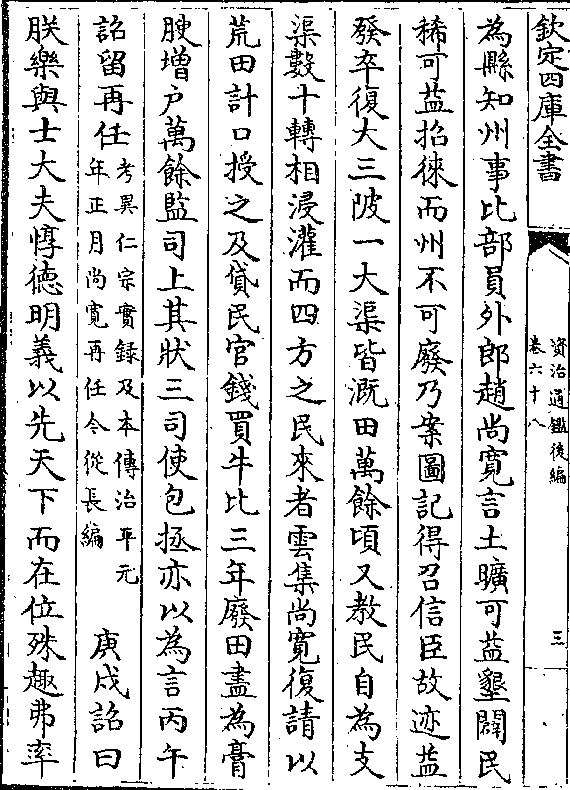 欽定四庫全書
資治通鑑後編
卷六十八
三
為縣知州事比部員外郎趙尚寛言土曠可益墾闢民
稀可益招徠而州不可廢乃案圖記得召信臣故迹益
發卒復大三陂一大渠皆溉田萬餘頃又教民自為支
渠數十轉相浸灌而四方之民來者雲集尚寛復請以
荒田計口授之及貸民官錢買牛比三年廢田盡為膏
腴增户萬餘監司上其狀三司使包拯亦以為言丙午
詔留再任
考異仁宗實録及本傳治平元
年正月尚寛再任今從長編
庚戍詔曰
朕樂與士大夫惇德明義以先天下而在位殊趣弗率